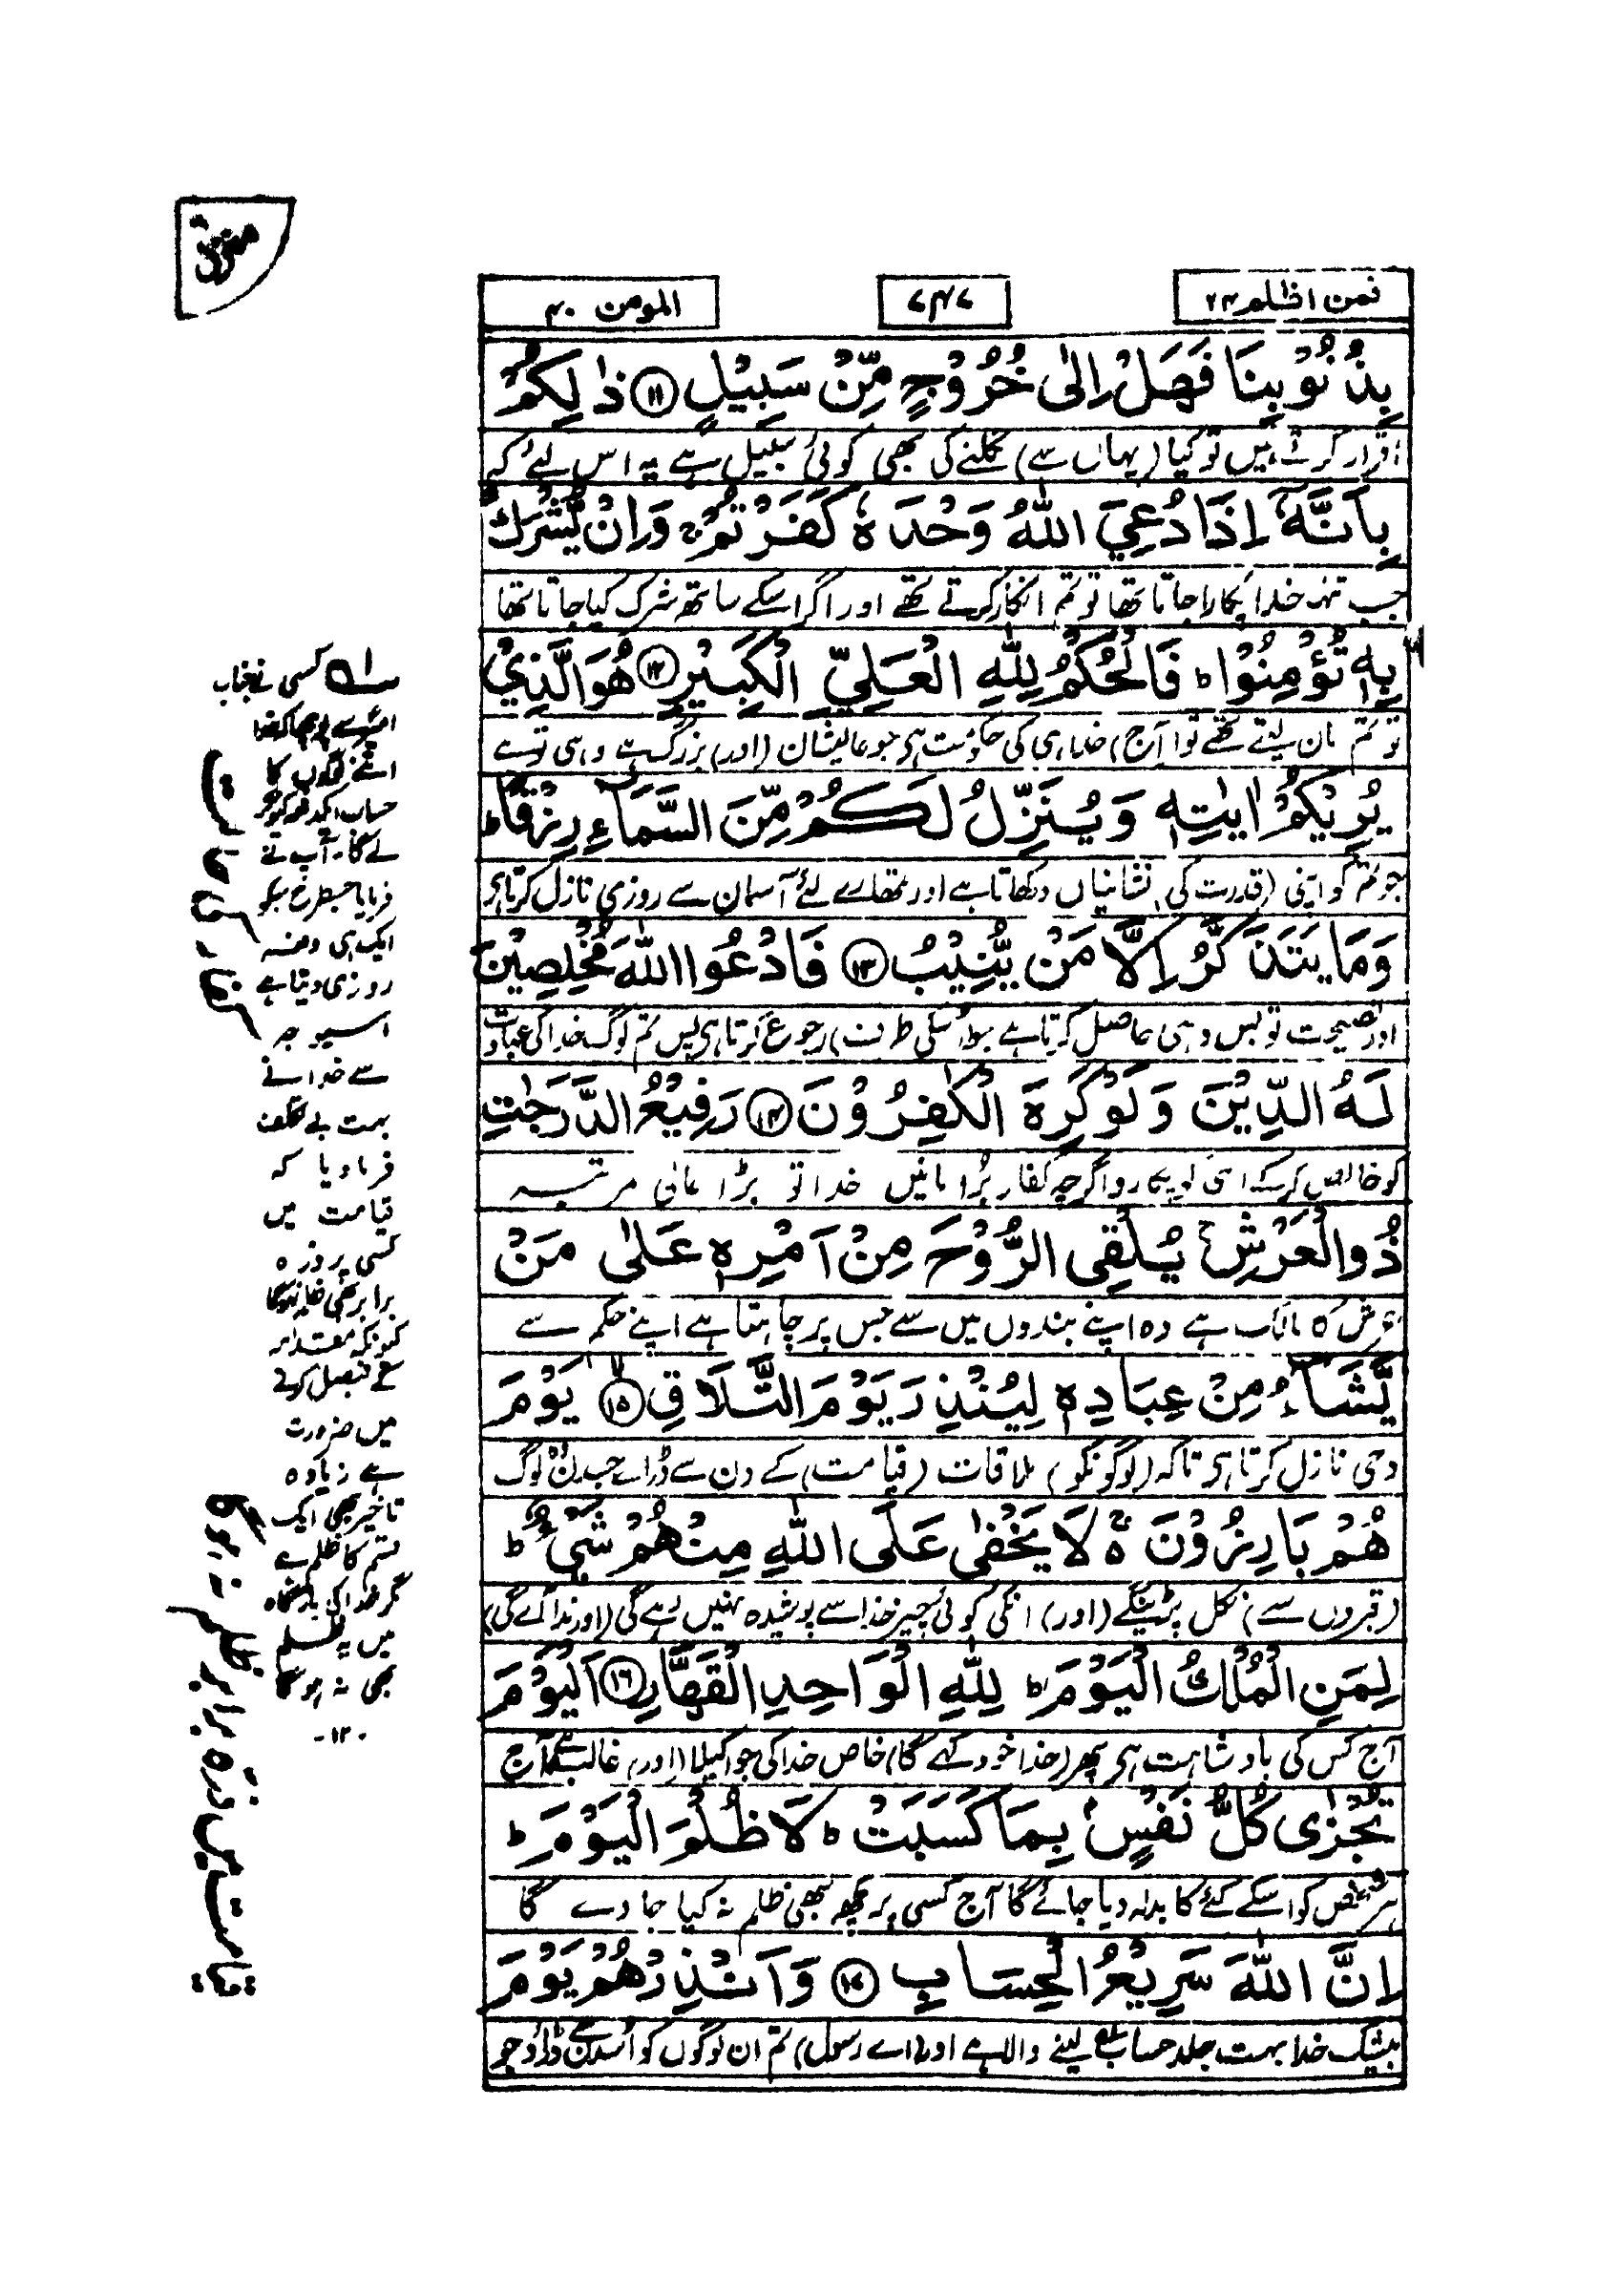 فمن اظلم ۲۴
۷۴۷
المومن ۴۰
بِذُنُوْبِنَا فَهَلْ اِلٰى خُرُوْجٍ مِّنْ سَبِيْلٍ ﴿۱۱﴾ ذٰلِكُمْ
اقرار کرتے ہیں تو کیا (یہاں سے) نکلنے کی بھی کوئی سبیل ہے یہ اس لئے کہ
بِاَنَّهٗۤ اِذَا دُعِيَ اللّٰهُ وَحْدَهٗ كَفَرْتُمْ ۚ وَاِنْ يُّشْرَكْ
جب تنہا خدا پکارا جاتا تھا تو تم انکار کرتے تھے اور اگر اسکے ساتھ شرک کیا جاتا تھا
بِهٖ تُؤْمِنُوْا ؕ فَالْحُكْمُ لِلّٰهِ الْعَلِيِّ الْكَبِيْرِ ﴿۱۲﴾ هُوَ الَّذِيْ
تو تم مان لیتے تھے تو (آج) خدا ہی کی حکومت ہی جو عالیشان (اور) بزرگ ہے وہی تو ہے
يُرِيْكُمْ اٰيٰتِهٖ وَيُنَزِّلُ لَكُمْ مِّنَ السَّمَآءِ رِزْقًا ؕ
جو تم کو اپنی (قدرت کی) نشانیاں دکھاتا ہے اور تمھارے لئے آسمان سے روزی نازل کرتا ہی
وَمَا يَتَذَكَّرُ اِلَّا مَنْ يُّنِيْبُ ﴿۱۳﴾ فَادْعُوا اللّٰهَ مُخْلِصِيْنَ
اور نصیحت تو بس وہی حاصل کرتا ہے جو (اسکی طرف) رجوع کرتا ہی پس تم لوگ خدا کی عبادت
لَهُ الدِّيْنَ وَلَوْ كَرِهَ الْكٰفِرُوْنَ ﴿۱۴﴾ رَفِيْعُ الدَّرَجٰتِ
کو خالص کر کے اسی کو پکارو اگرچہ کفار بُرا مانیں خدا تو بڑا عالی مرتبہ
ذُو الْعَرْشِ ۚ يُلْقِى الرُّوْحَ مِنْ اَمْرِهٖ عَلٰى مَنْ
عرش کا مالک ہے وہ اپنے بندوں میں سے جس پر چاہتا ہے اپنے حکم سے
يَّشَآءُ مِنْ عِبَادِهٖ لِيُنْذِرَ يَوْمَ التَّلَاقِ ﴿۱۵﴾ يَوْمَ
وحی نازل کرتا ہی تاکہ (لوگونکو) ملاقات (قیامت) کے دن سے ڈرائے جسدن وہ لوگ
هُمْ بَارِزُوْنَ ۚ۬ لَا يَخْفٰى عَلَى اللّٰهِ مِنْهُمْ شَيْءٌ ؕ
(قبروں سے) نکل پڑینگے (اور) انکی کوئی چیز خدا سے پوشیدہ نہیں رہے گی (اور ندا آئے گی)
لِمَنِ الْمُلْكُ الْيَوْمَ ؕ لِلّٰهِ الْوَاحِدِ الْقَهَّارِ ﴿۱۶﴾ اَلْيَوْمَ
آج کس کی بادشاہت ہی پھر (خدا خود کہے گا) خاص خدا کی جو اکیلا (اور) غالب ہے آج
تُجْزٰى كُلُّ نَفْسٍۭ بِمَا كَسَبَتْ ؕ لَا ظُلْمَ الْيَوْمَ ؕ
ہر شخص کو اسکے کئے کا بدلہ دیا جائے گا آج کسی پر کچھ بھی ظلم نہ کیا جاوے گا
اِنَّ اللّٰهَ سَرِيْعُ الْحِسَابِ ﴿۱۷﴾ وَاَنْذِرْهُمْ يَوْمَ
بیشک خدا بہت جلد حساب لینے والا ہے اور (اے رسول) تم ان لوگوں کو اُسدن سے ڈراؤ جو
کسی نے جناب
امیر سے پوچھا کہ خدا
اتنے لوگوں کا
حساب ایکدفعہ کیونکر
لے گا۔ آپ نے
فرمایا جسطرح سبکو
ایک ہی دفعہ
روزی دیتا ہے
اسیوجہ
سے خدا نے
بہت بے تکلف
فرما دیا کہ
قیامت میں
کسی پر ذرہ
برابر بھی ظلم نہ ہوگا
کیونکہ مقدار
کے فیصل کرنے
میں ضرورت
سے زیادہ
تاخیر بھی ایک
قسم کا ظلم ہے
مگر خدا کی بارگاہ
میں یہ ظلم
بھی نہ ہوگا
۱۲۔
قیامت میں ذرہ برابر ظلم نہ ہوگا